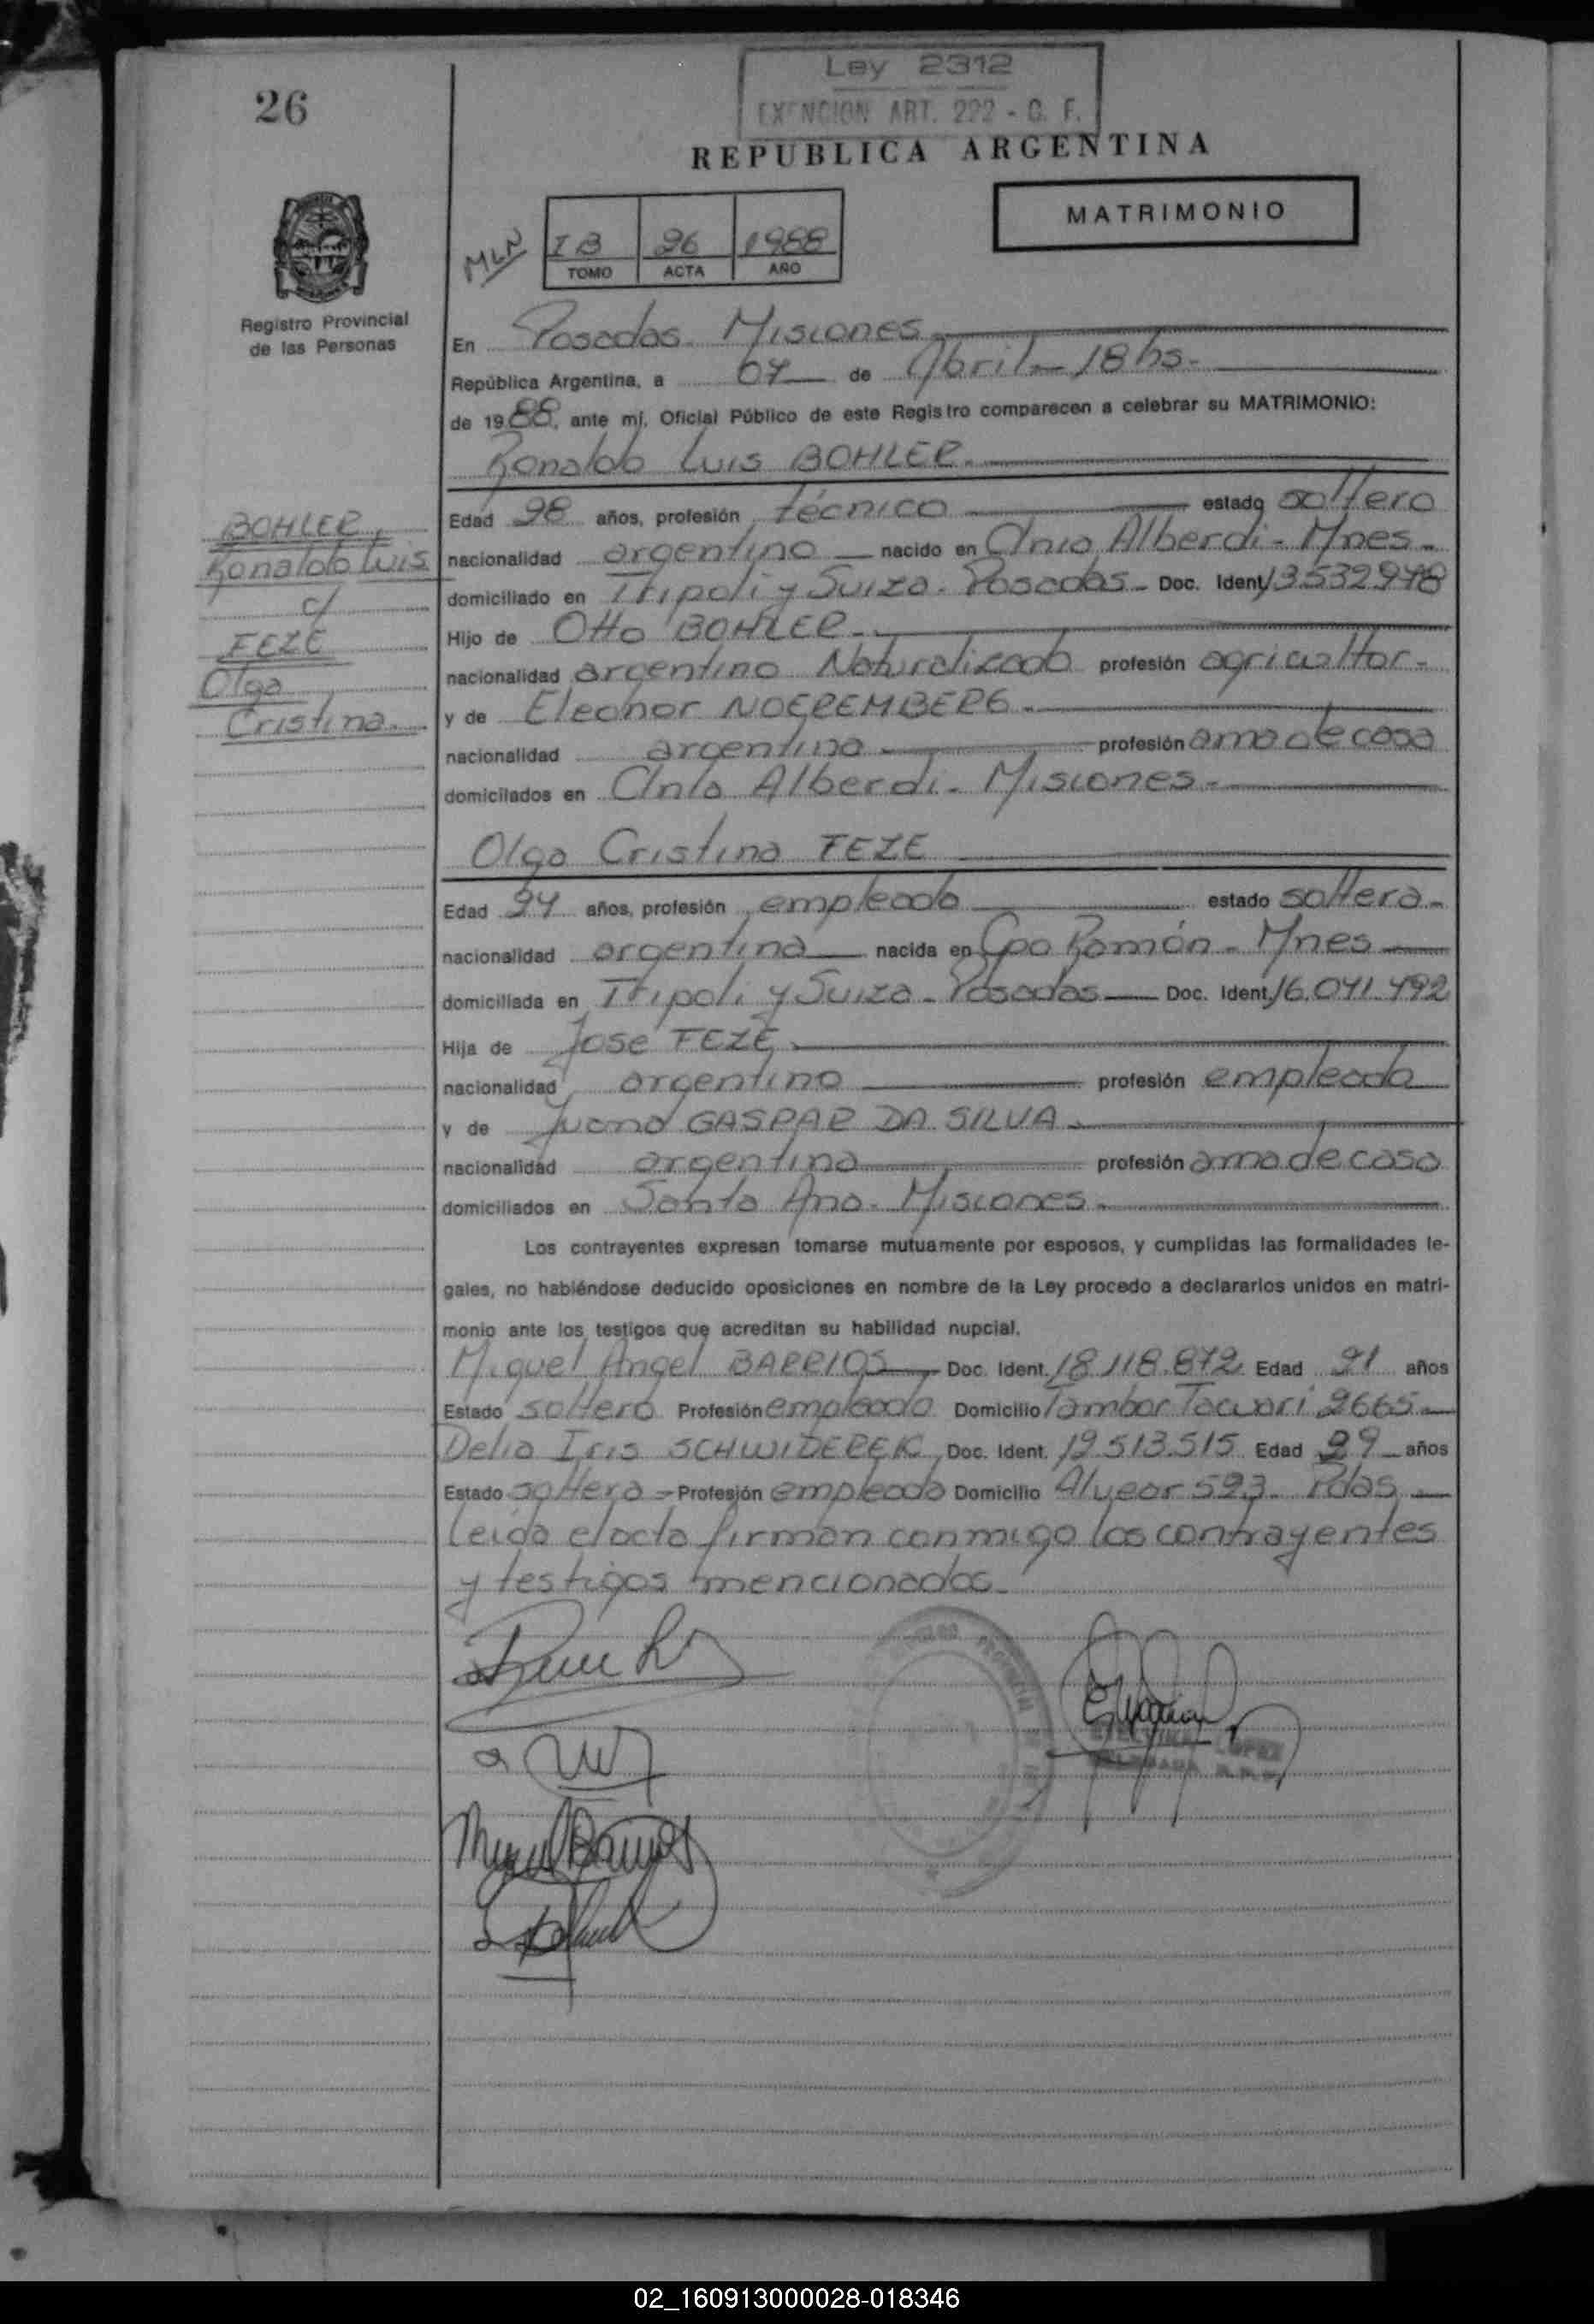 26
Ley 2312
EXENCION ART. 222 - C. F.
REPUBLICA ARGENTINA
MATRIMONIO
MLN
I B 26 1988
TOMO ACTA AÑO
Registro Provincial
de las Personas
En Posadas Misiones
República Argentina, a 07 de Abril 18 hs.
de 1988, ante mí, Oficial Público de este Registro comparecen a celebrar su MATRIMONIO:
Ronaldo Luis BOHLER.
BOHLER,
Ronaldo Luis
c/
FEZE
Olga
Cristina.
Edad 28 años, profesión técnico estado soltero
nacionalidad argentino nacido en Clnia Alberdi - Mnes -
domiciliado en Tripoli y Suiza - Posadas - Doc. Ident. 13.532.948
Hijo de Otto BOHLER
nacionalidad argentino Naturalizado profesión agricultor -
y de Eleonor NOEREMBERG
nacionalidad argentina profesión ama de casa
domicilados en Clnia Alberdi - Misiones -
Olga Cristina FEZE
Edad 24 años, profesión empleada estado soltera -
nacionalidad argentina nacida en Cpo Ramón - Mnes
domiciliada en Tripoli y Suiza - Posadas Doc. Ident. 16.041.492
Hija de Jose FEZE
nacionalidad argentino profesión empleado
y de Juana GASPAR DA SILVA
nacionalidad argentina profesión ama de casa
domiciliados en Santa Ana - Misiones
Los contrayentes expresan tomarse mutuamente por esposos, y cumplidas las formalidades le-
gales, no habiéndose deducido oposiciones en nombre de la Ley procedo a declararlos unidos en matri-
monio ante los testigos que acreditan su habilidad nupcial.
Miguel Angel BARRIOS Doc. Ident. 18.118.872 Edad 21 años
Estado soltero Profesión empleado Domicilio Tambor Tacuari 2665
Delia Iris SCHWIDEREK Doc. Ident. 12.513.515 Edad 29 años
Estado soltera - Profesión empleada Domicilio Alvear 523 - Pdas
Leida el acta firman conmigo los contrayentes
y testigos mencionados
02_160913000028-018346